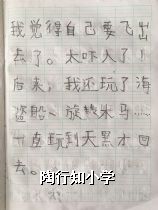 我觉得自己要飞出
去了。太吓人了！
后来，我还玩了海
盗船、旋转木马……
一直玩到天黑才回
去。
陶行知小学